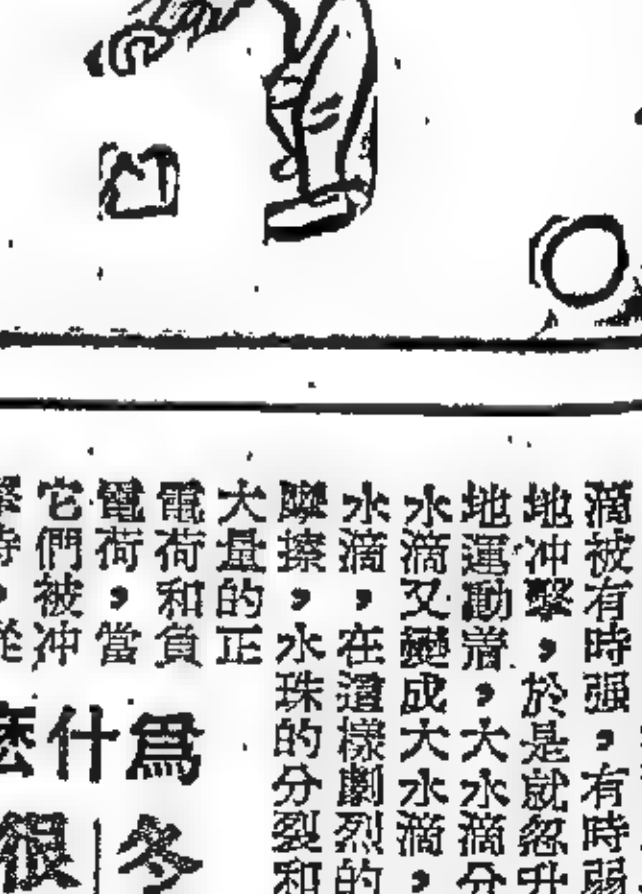 滴被有時强，有時弱
地冲擊，於是就忽升
地運動着，大水滴分
水滴又變成大水滴，
水滴，在這樣劇烈的
摩擦，水珠的分裂和
大量的正
電荷和負
電荷，當
它們被冲
擊時，從
爲什麽
冬
很